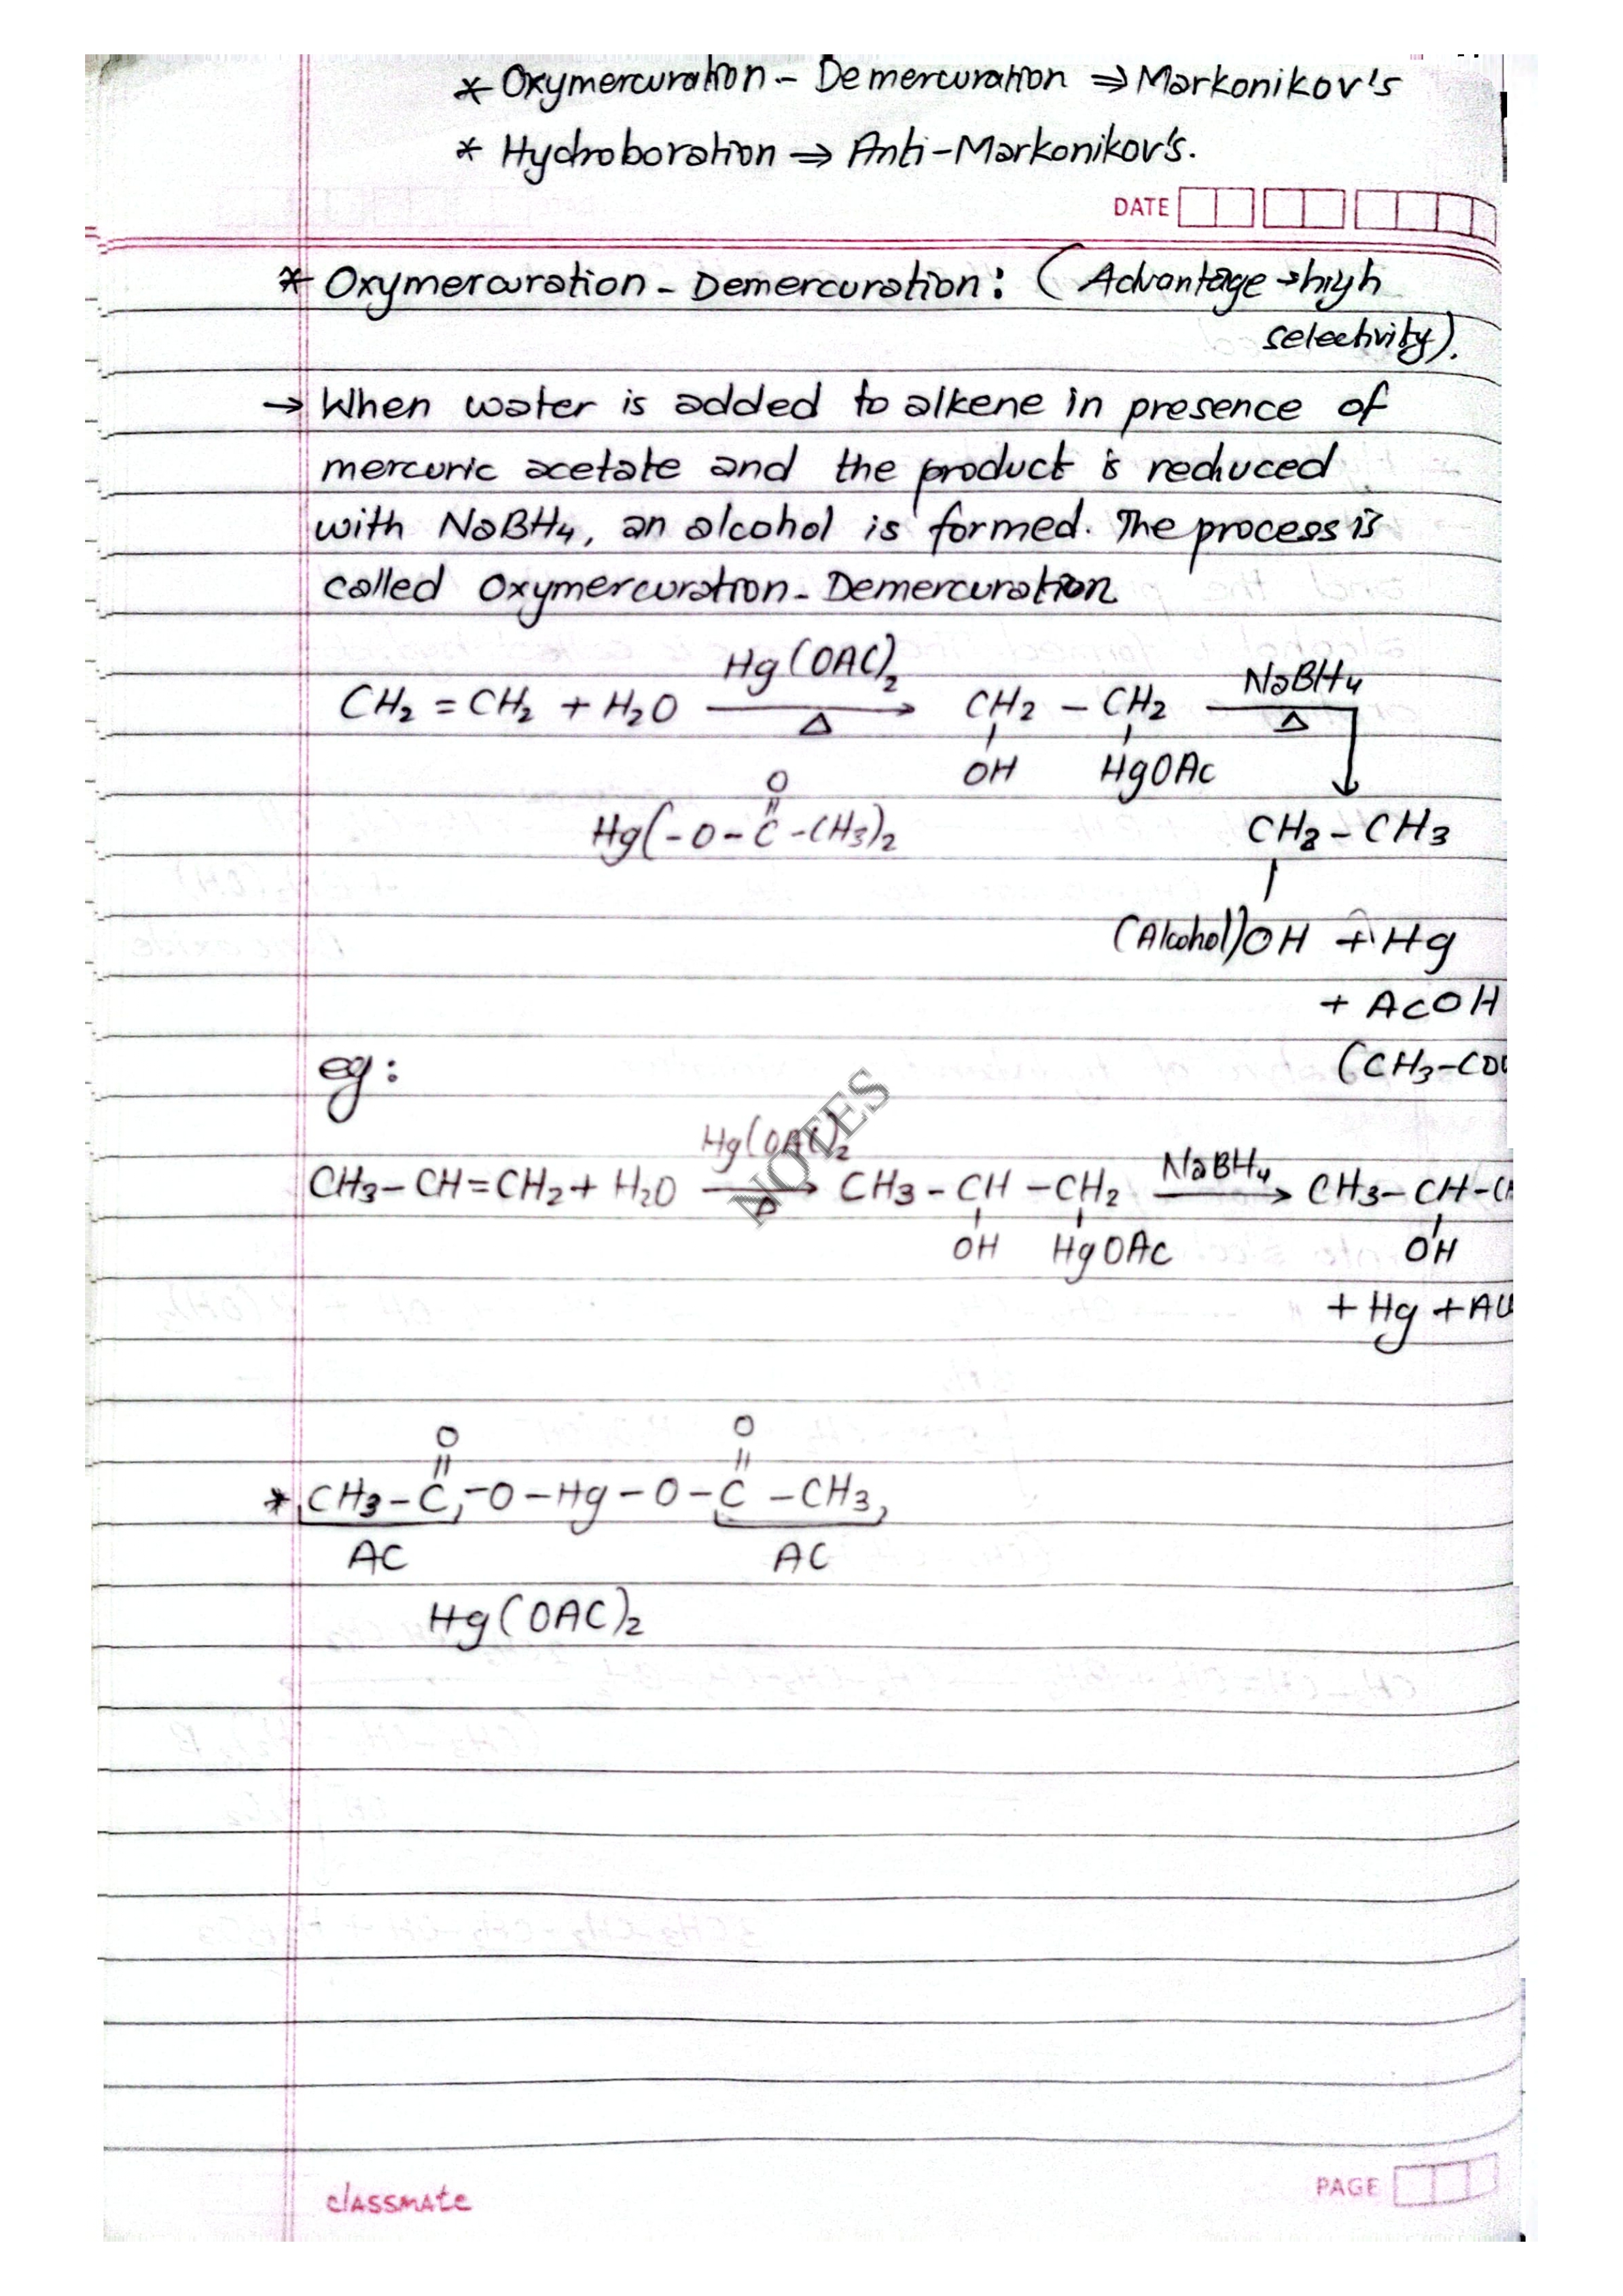 * Oxymercuration - Demercuration ⇒ Markonikov's
* Hydroboration ⇒ Anti-Markonikov's.
DATE
* Oxymercuration - Demercuration: (Advantage → high
selectivity).
→ When water is added to alkene in presence of
mercuric acetate and the product is reduced
with NaBH4, an alcohol is formed. The process is
called Oxymercuration - Demercuration
Hg(OAC)2
NaBH4
CH2 = CH2 + H2O ⟶ CH2 - CH2 ⟶
Δ Δ
OH HgOAc
O
||
Hg(-O-C-CH3)2 CH2 - CH3
|
(Alcohol) OH + Hg
+ AcOH
(CH3-COO
eg:
Hg(OAC)2
NaBH4
CH3 - CH = CH2 + H2O ⟶ CH3 - CH - CH2 ⟶ CH3 - CH - CH
Δ
OH HgOAc OH
+ Hg + AC
NOTES
O O
|| ||
* CH3 - C - O - Hg - O - C - CH3
AC AC
Hg(OAC)2
classmate
PAGE